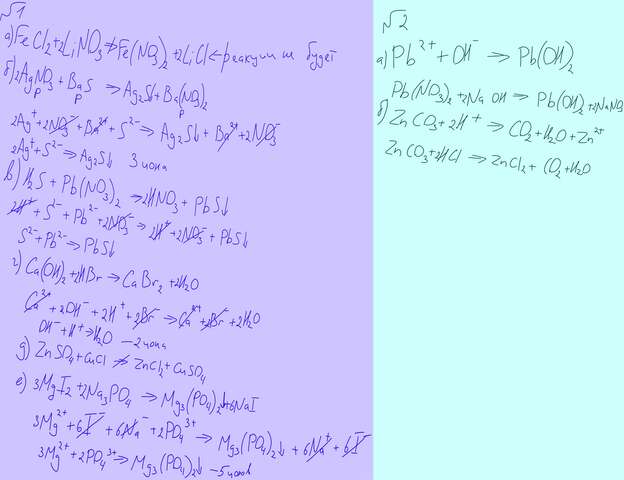 №1
а) FeCl₂+2LiNO₃⇏Fe(NO₃)₂+2LiCl ← реакции не будет
б) 2AgNO₃ + BaS → Ag₂S↓ + Ba(NO₃)₂
р р р
2Ag⁺+2NO₃⁻+Ba²⁺+S²⁻ → Ag₂S↓ + Ba²⁺+2NO₃⁻
2Ag⁺+S²⁻ → Ag₂S↓ 3 иона
в) H₂S + Pb(NO₃)₂ → 2HNO₃ + PbS↓
2H⁺ + S²⁻ + Pb²⁻ + 2NO₃⁻ → 2H⁺ + 2NO₃⁻ + PbS↓
S²⁻+Pb²⁻ → PbS↓
г) Ca(OH)₂+2HBr → CaBr₂ + 2H₂O
Ca²⁺ + 2OH⁻ + 2H⁺ + 2Br⁻ → Ca²⁺ + 2Br⁻ + 2H₂O
OH⁻ + H⁺ → H₂O – 2 иона
д) ZnSO₄ + CuCl ⇏ ZnCl₂ + CuSO₄
е) 3MgI₂ + 2Na₃PO₄ → Mg₃(PO₄)₂↓+6NaI
3Mg²⁺ + 6I⁻ + 6Na⁻ + 2PO₄³⁺ → Mg₃(PO₄)₂↓ + 6Na⁺ + 6I⁻
3Mg²⁺ + 2PO₄³⁺ → Mg₃(PO₄)₂↓ – 5 ионов
№2
а) Pb²⁺ + OH⁻ → Pb(OH)₂
Pb(NO₃)₂ + 2NaOH → Pb(OH)₂ + 2NaNO₃
б) ZnCO₃ + 2H⁺ → CO₂ + H₂O + Zn²⁺
ZnCO₃ + 2HCl → ZnCl₂ + CO₂ + H₂O